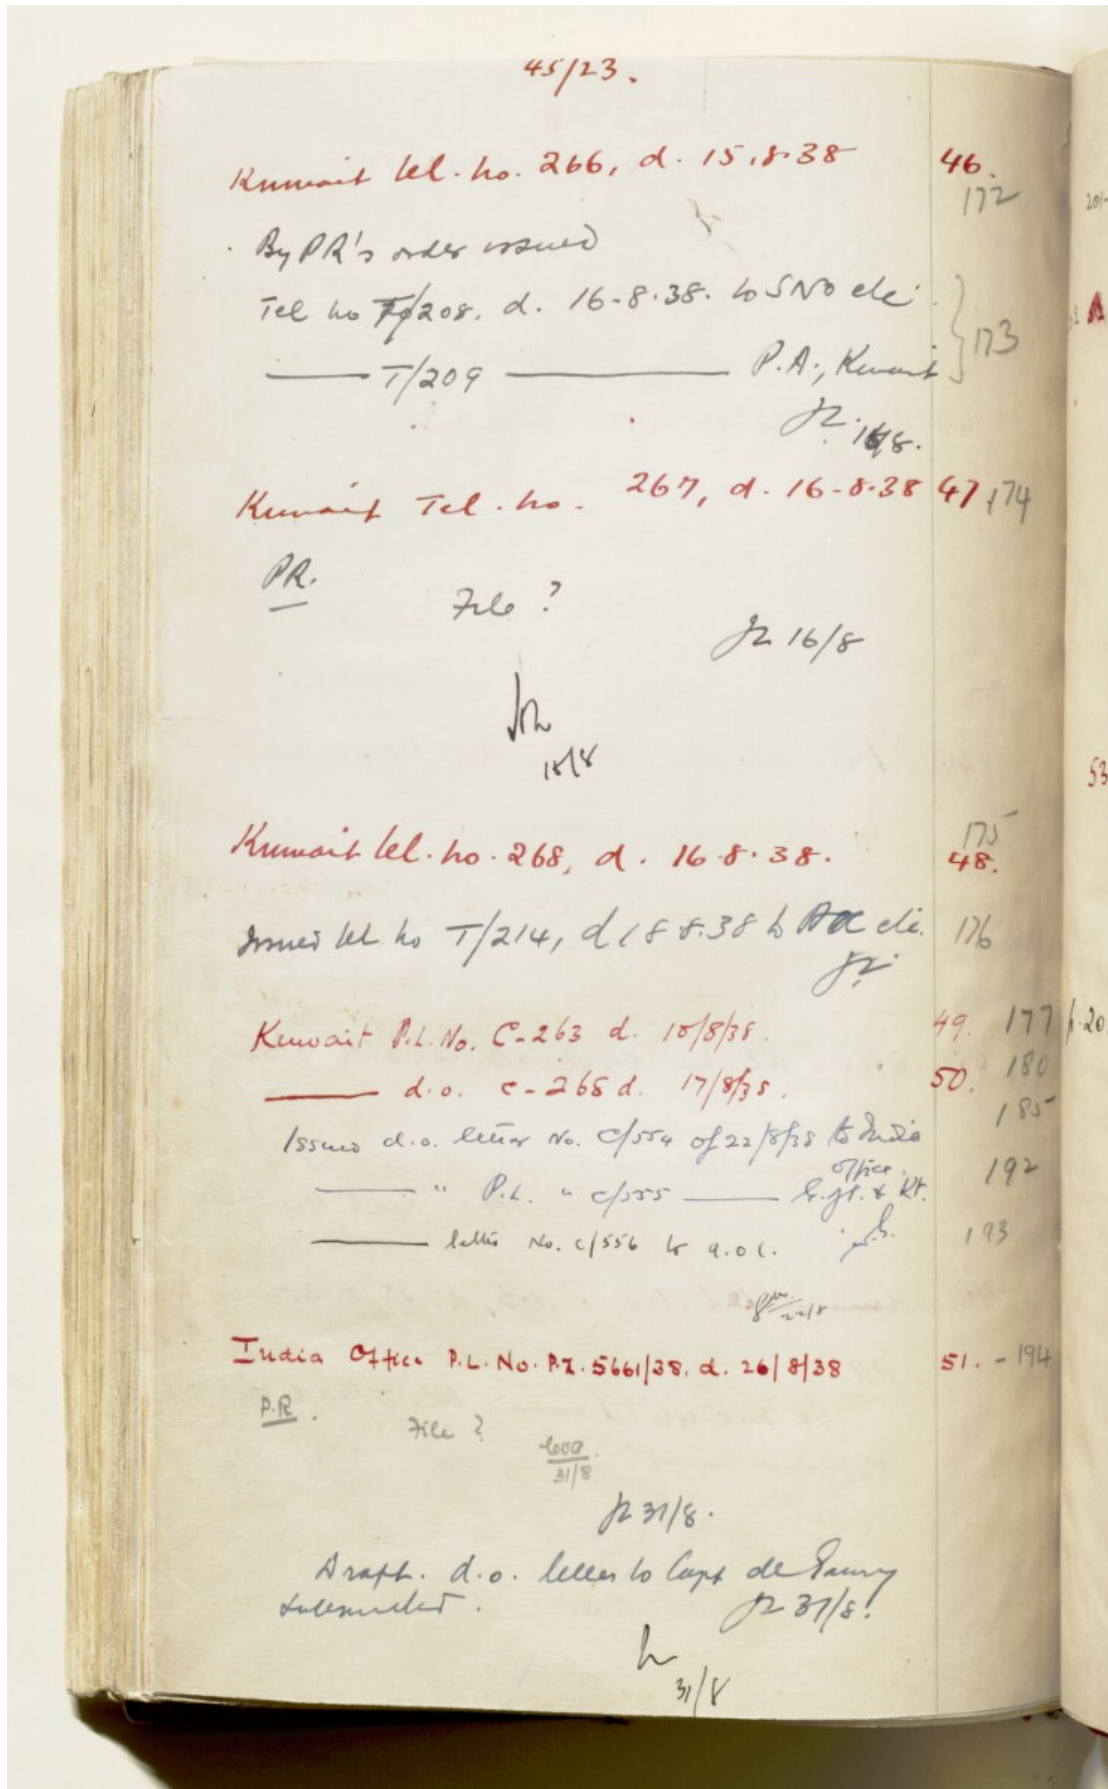 45/23.
Kuwait tel. no. 266, d. 15.8.38 46.
172
By PR's order issued
Tel no T/208. d. 16-8-38. to SNO etc.
173
—— T/209 —— P.A., Kuwait
16/8.
Kuwait Tel. no. 267, d. 16-8-38 47 174
PR.
File ?
16/8
18/8
175
Kuwait tel. no. 268, d. 16.8.38. 48.
Issued tel no T/214, d 18.8.38 to etc. 176
Kuwait P.L. No. C-263 d. 18/8/38. 49. 177
—— d.o. C-268 d. 17/8/38. 50. 180
185
Issued d.o. letter No. C/554 of 22/8/38 to India
Office. 192
—— " P.L. " C/555 —— & Kt.
—— letter No. C/556 to A.O.C. 193
22/8
India Office P.L. No. P.Z. 5661/38, d. 26/8/38 51. - 194
P.R.
File ?
31/8
31/8.
Draft. d.o. letter to Capt de Gaury
submitted. 31/8.
31/8
53